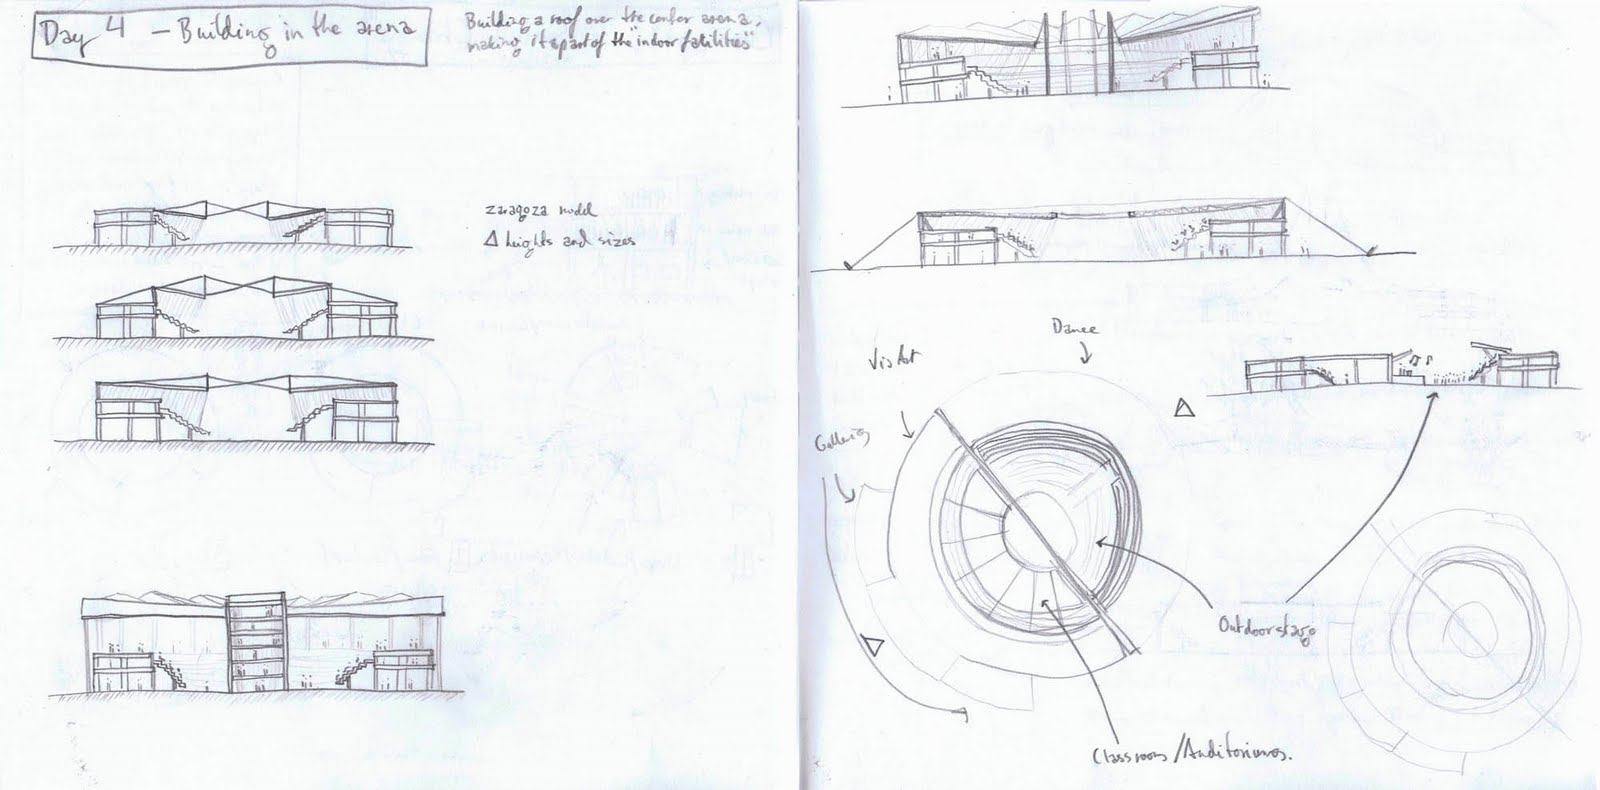 Day 4 – Building in the arena
Building a roof over the center arena,
making it a part of the "indoor fatilities"
zaragoza model
Δ heights and sizes
Dance
Vis Art
Galleries
Outdoor stage
Classrooms / Auditoriums.